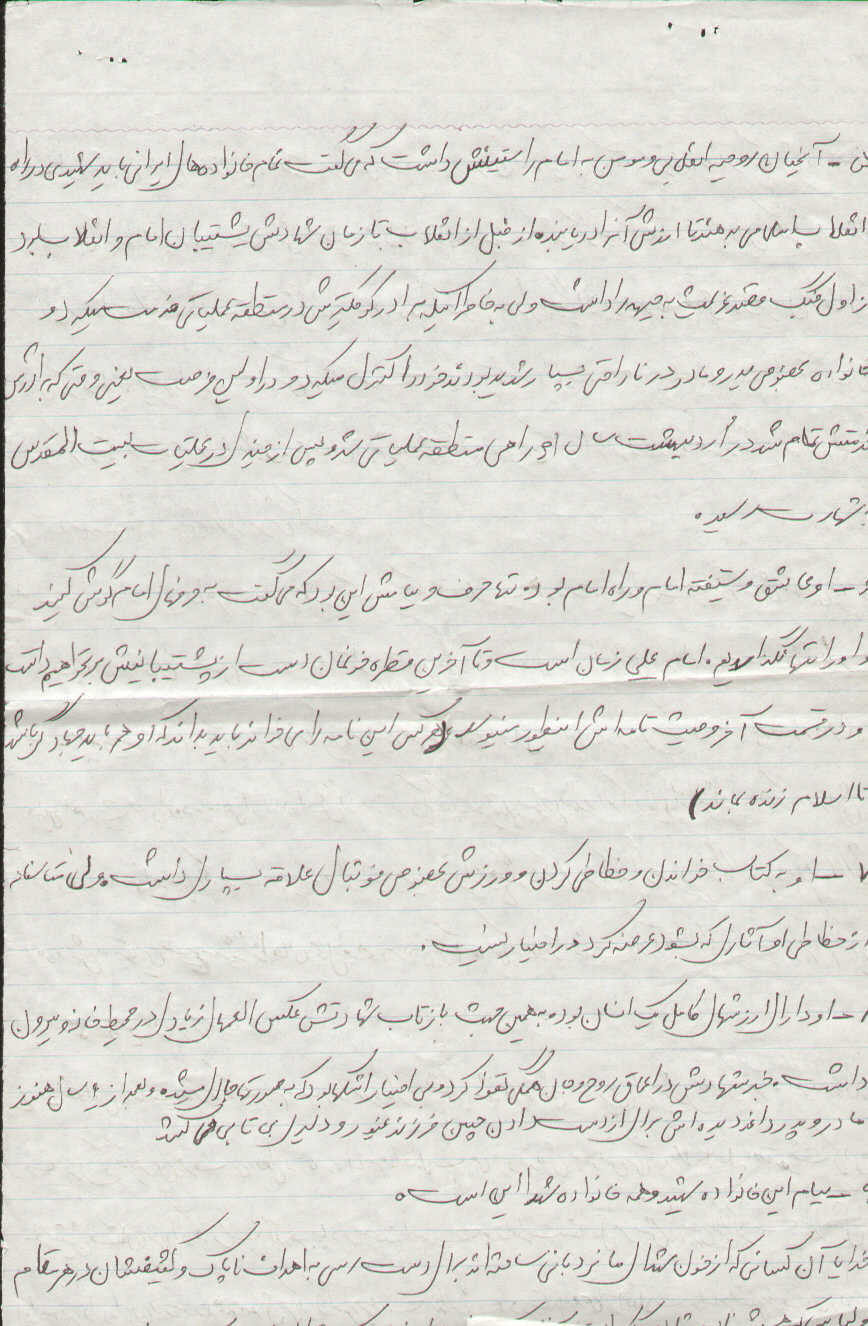 آنچنان روحیه انقلابی و مومن به امام راستینش داشت که می گفت تمام خانواده های ایرانی باید شهیدی در راه
انقلاب اسلامی بدهند تا ارزش آنرا دریابند و از قبل از انقلاب تا زمان شهادتش پشتیبان امام و انقلاب بود
از اول جنگ قصد عزیمت به جبهه را داشت ولی به خاطر اینکه برادر کوچکترش در منطقه عملیاتی خدمت میکرد و
خانواده بخصوص پدر و مادر در ناراحتی بسیار شدید بودند خود را کنترل میکرد و در اولین فرصت یعنی وقتی که برادرش
خدمتش تمام شد در اردیبهشت سال راهی منطقه عملیاتی شد و پس از چندی در عملیات بیت المقدس
بشهادت رسید.
او عاشق و شیفته امام و راه امام بود و تنها حرف و پیامش این بود که می گفت به حرفهای امام گوش کنید
و او را تنها نگذارید. امام علی زمان است و تا آخرین قطره خونمان دست از پشتیبانیش بر نخواهیم داشت
و در قسمت آخر وصیت نامه اش اینطور مینویسد (هر کس این نامه را می خواند باید بداند که او هم باید جهادگر باشد
تا اسلام زنده بماند)
او به کتاب خواندن و خطاطی کردن و ورزش بخصوص فوتبال علاقه بسیاری داشت. ولی متاسفانه
از خطاطی او آثاری که بشود عرضه کرد در اختیار نیست.
او دارای ارزشهای کامل یک انسان بوده به همین جهت بازتاب شهادتش عکس العملهای زیادی در محیط خانه و بیرون
داشت. خبر شهادتش در اعماق روح و جان همگی نفوذ کرد و بی اختیار اشکها بود که به صورتها جاری میشد و بعد از ۶ سال هنوز
مادر و پدر داغدیده اش برای از دست دادن چنین فرزند غیور و دلیری بی تابی می کنند
پیام این خانواده شهید و همه خانواده شهدا این است.
خدایا آن کسانی که از خون شهدای ما نردبانی ساخته اند برای دست رسی به اهداف ناپاک و کثیفشان در هر مقام